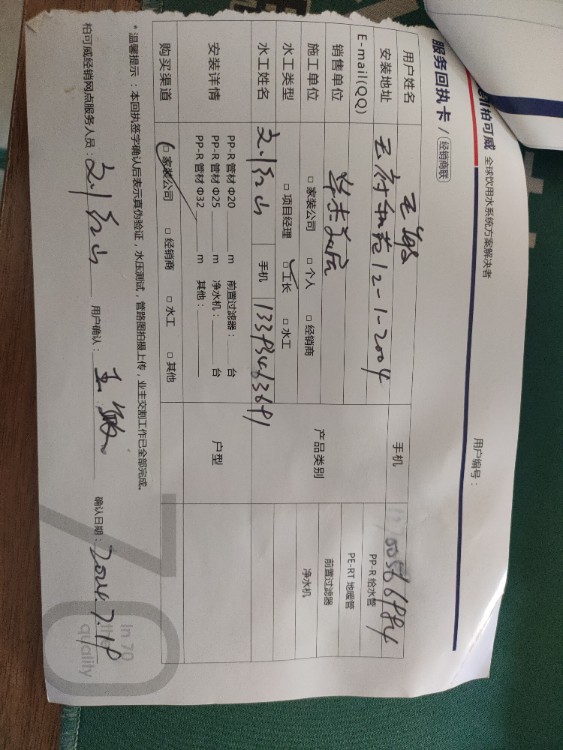 柏可威 全球饮用水系统方案解决者
服务回执卡 / 经销商联
用户编号：
用户姓名 王敏 手机
安装地址 天府和苑12-1-2004
E-mail(QQ)
销售单位
施工单位 □ 家装公司 □ 个人 □ 经销商
产品类别
PP-R 给水管
PE-RT 地暖管
前置过滤器
净水机
水工类型 □ 项目经理 □ 工长 □ 水工
水工姓名 刘红山 手机
安装详情
PP-R 管材 Φ20 m 前置过滤器： 台
PP-R 管材 Φ25 m 净水机： 台
PP-R 管材 Φ32 m 其他：
户型
购买渠道 □ 家装公司 □ 经销商 □ 水工 □ 其他
* 温馨提示：本回执签字确认后表示真伪验证，水压测试，管路图拍摄上传，业主交割工作已全部完成。
柏可威经销网点服务人员：刘红山 用户确认：王敏 确认日期：2024.7.18
In 70
the
quality